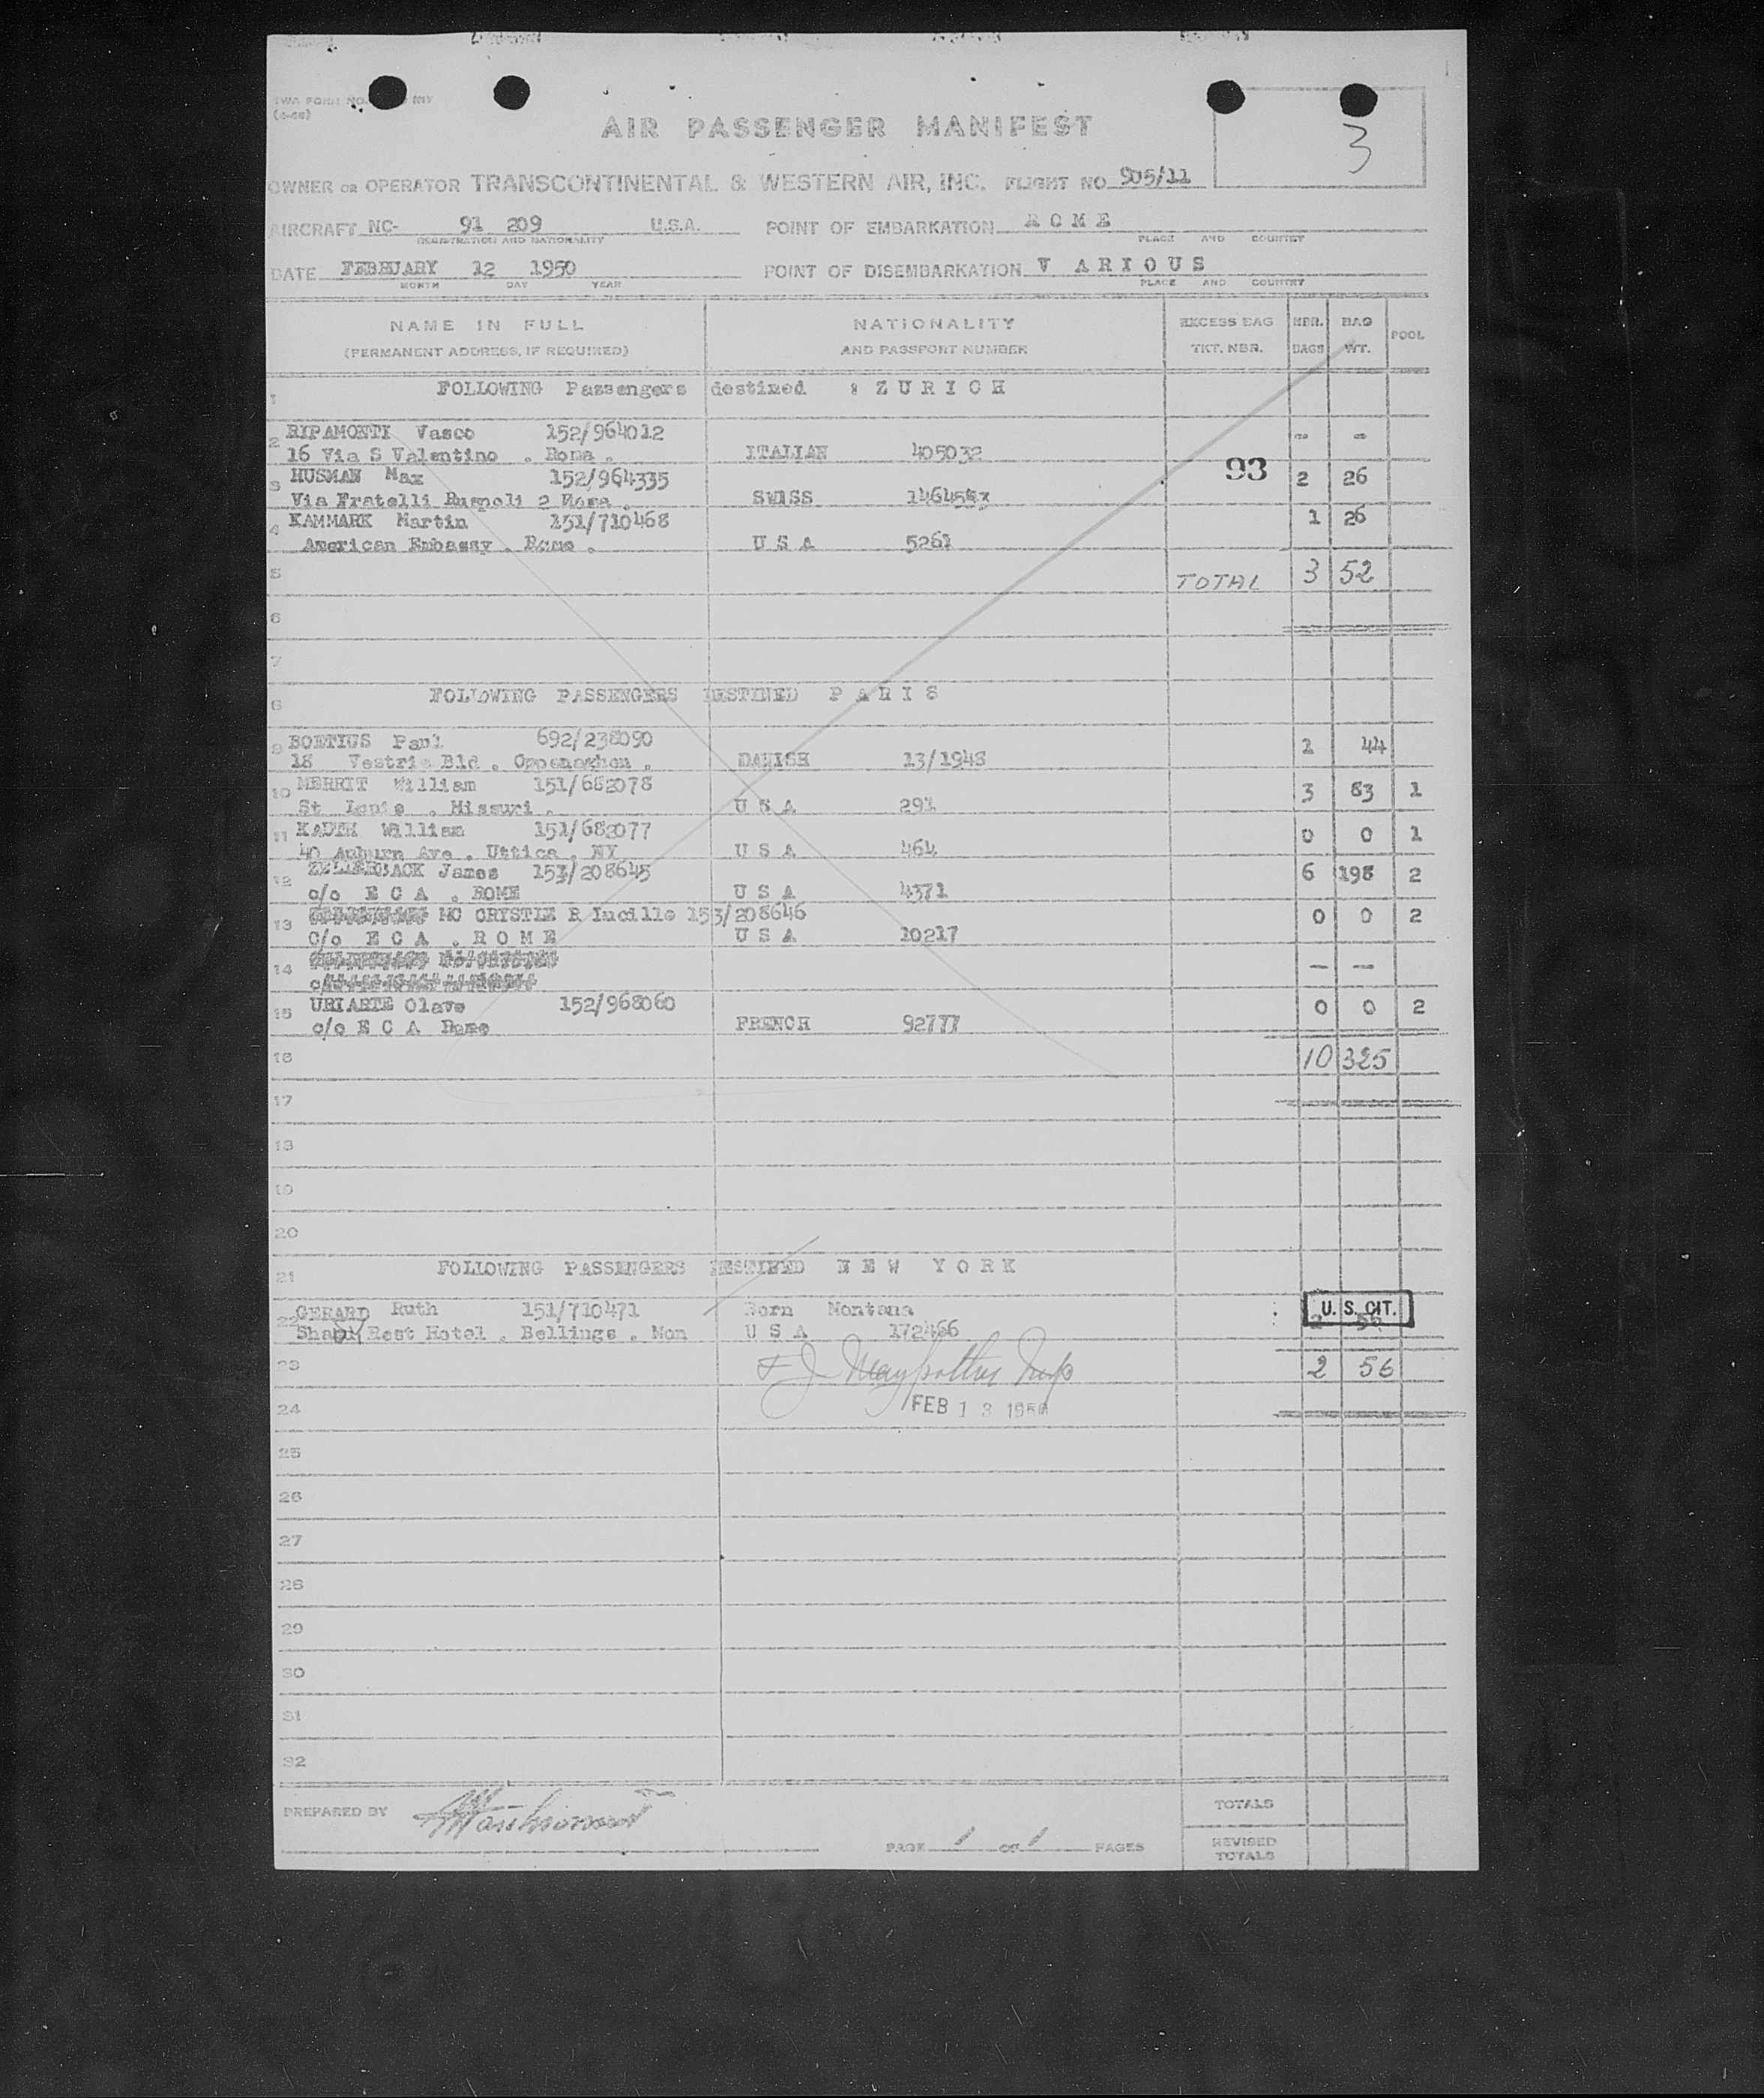 TWA FORM NO.
AIR PASSENGER MANIFEST
3
OWNER OR OPERATOR TRANSCONTINENTAL & WESTERN AIR, INC. FLIGHT NO 905/11
AIRCRAFT NC- 91 209 U.S.A. POINT OF EMBARKATION R O M E
REGISTRATION AND NATIONALITY PLACE AND COUNTRY
DATE FEBRUARY 12 1950 POINT OF DISEMBARKATION V A R I O U S
MONTH DAY YEAR PLACE AND COUNTRY
NAME IN FULL NATIONALITY EXCESS BAG NBR. BAG POOL
(PERMANENT ADDRESS, IF REQUIRED) AND PASSPORT NUMBER TKT. NBR. BAGS WT.
1 FOLLOWING Passengers destined : Z U R I C H
2 RIPAMONTI Vasco 152/964012 - -
16 Via S Valentino . Roma . ITALIAN 405032
93
3 HUSMAN Max 152/964335 2 26
Via Fratelli Ruspoli 2 Roma . SWISS
4 KAMMARK Martin 151/710468 1 26
American Embassy . Rome . U S A 5261
5 TOTAL 3 52
6
7
8 FOLLOWING PASSENGERS DESTINED P A R I S
9 BOETIUS Paul 692/238090 1 44
18 Vestris Bld . DANISH 13/1948
10 MERRIT William 151/682078 3 83 1
St Louis . Missuri . U S A 291
11 William 151/682077 0 0 1
40 Auburn Ave . Uttica . NY U S A 464
12 James 153/208645 6 198 2
c/o E C A . ROME U S A 4371
13 MC CRYSTLE R Lucille 153/208646 0 0 2
C/o E C A . R O M E U S A 10217
14 — —
15 URIARTE Olave 152/968060 0 0 2
c/o E C A Rome FRENCH 92777
16 10 325
17
18
19
20
21 FOLLOWING PASSENGERS DESTINED N E W Y O R K
22 GERARD Ruth 151/710471 Born Montana U. S. CIT.
Rest Hotel . Bellings . Mon U S A 172466 2 56
23 2 56
24 FEB 13 1950
25
26
27
28
29
30
31
32
PREPARED BY TOTALS
PAGE 1 OF 1 PAGES REVISED TOTALS